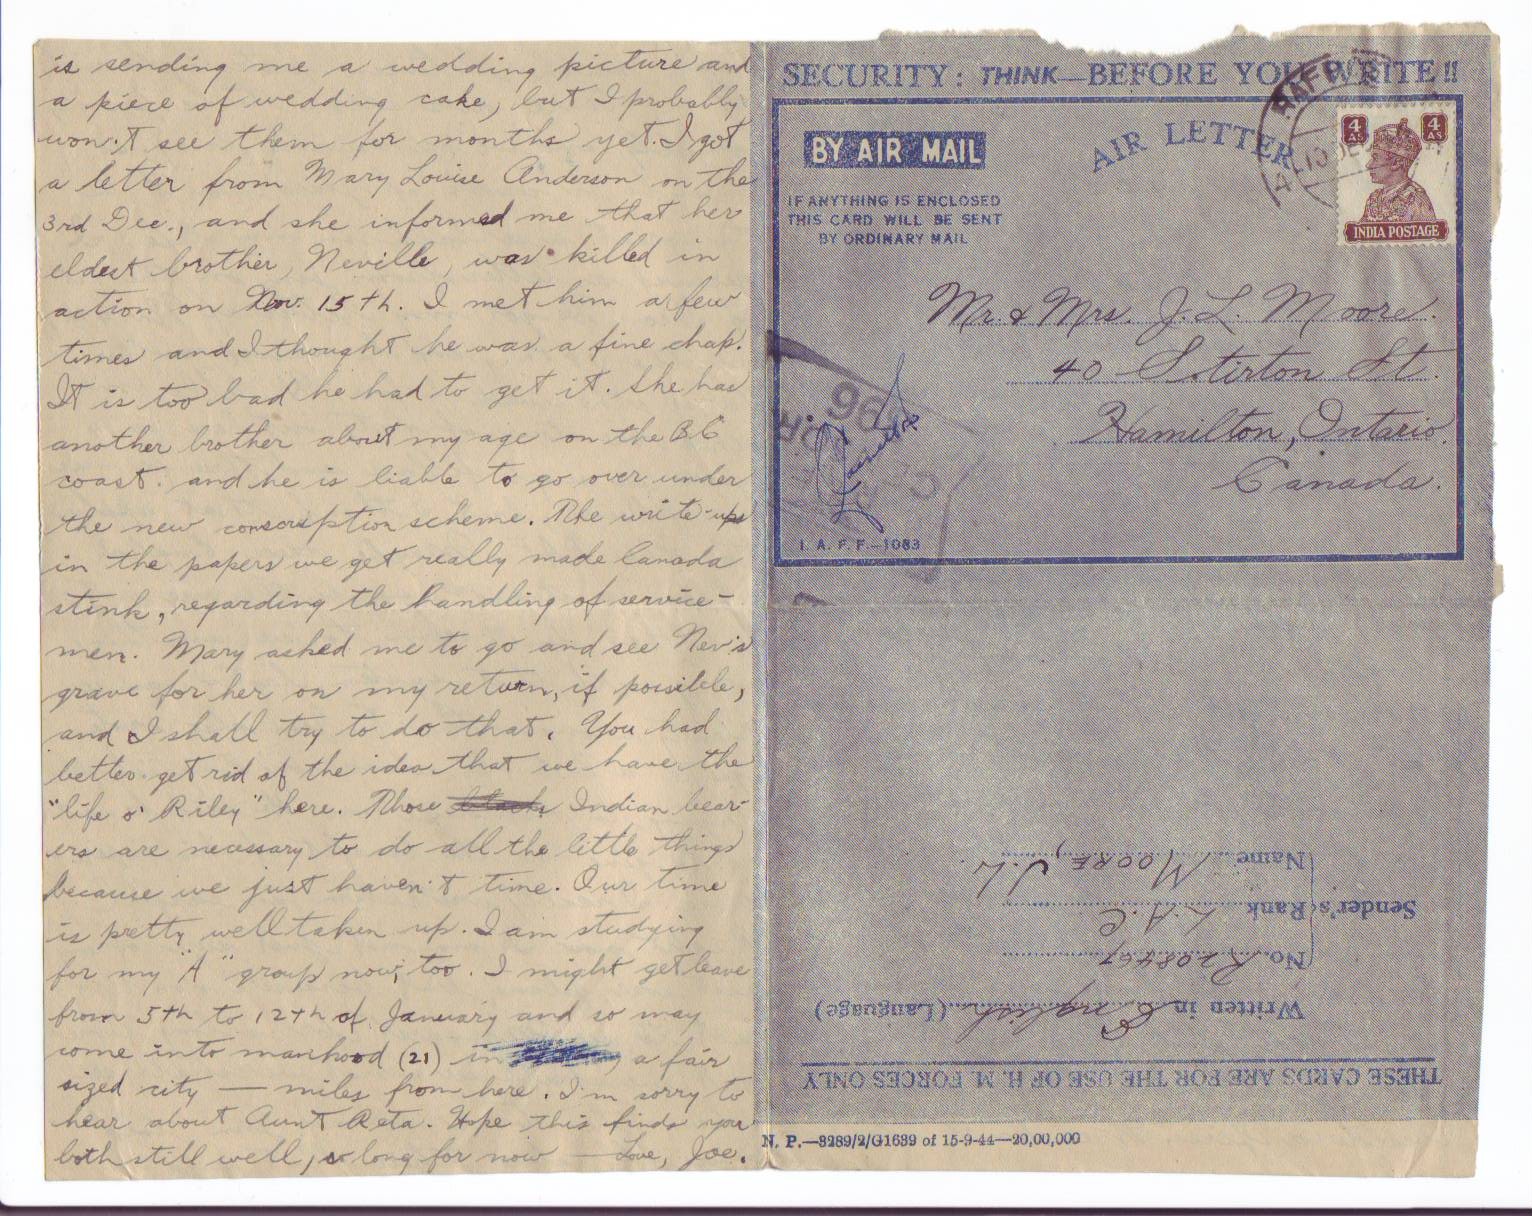 is sending me a wedding picture and
a piece of wedding cake, but I probably
won't see them for months yet. I got
a letter from Mary Louise Anderson on the
3rd Dec., and she informed me that her
eldest brother, Neville, was killed in
action on Nov. 15th. I met him a few
times and I thought he was a fine chap.
It is too bad he had to get it. She has
another brother about my age on the B.C
coast. and he is liable to go over under
the new conscription scheme. The write-ups
in the papers we get really made Canada
stink, regarding the handling of service-
men. Mary asked me to go and see Nev's
grave for her on my return, if possible,
and I shall try to do that. You had
better get rid of the idea that we have the
"life o' Riley" here. Those Indian bear-
ers are necessary to do all the little things
because we just haven't time. Our time
is pretty well taken up. I am studying
for my "A" group now, too. I might get leave
from 5th to 12th of January and so may
come into manhood (21) in a fair
sized city — miles from here. I'm sorry to
hear about Aunt Reta. Hope this finds you
both still well, so long for now — Love, Joe.
SECURITY: THINK—BEFORE YOU WRITE!!
BY AIR MAIL
AIR LETTER
IF ANYTHING IS ENCLOSED
THIS CARD WILL BE SENT
BY ORDINARY MAIL
4 AS. 4 AS.
INDIA POSTAGE
10 DE
Mr. & Mrs. J. L. Moore.
40 Stirton St.
Hamilton, Ontario.
Canada.
I. A. F. F.—1083
Name MOORE, J. W.
Sender's Rank L.A.C
No. R208467
Written in English (Language)
THESE CARDS ARE FOR THE USE OF H. M. FORCES ONLY
N. P.—3289/2/G1639 of 15-9-44—20,00,000